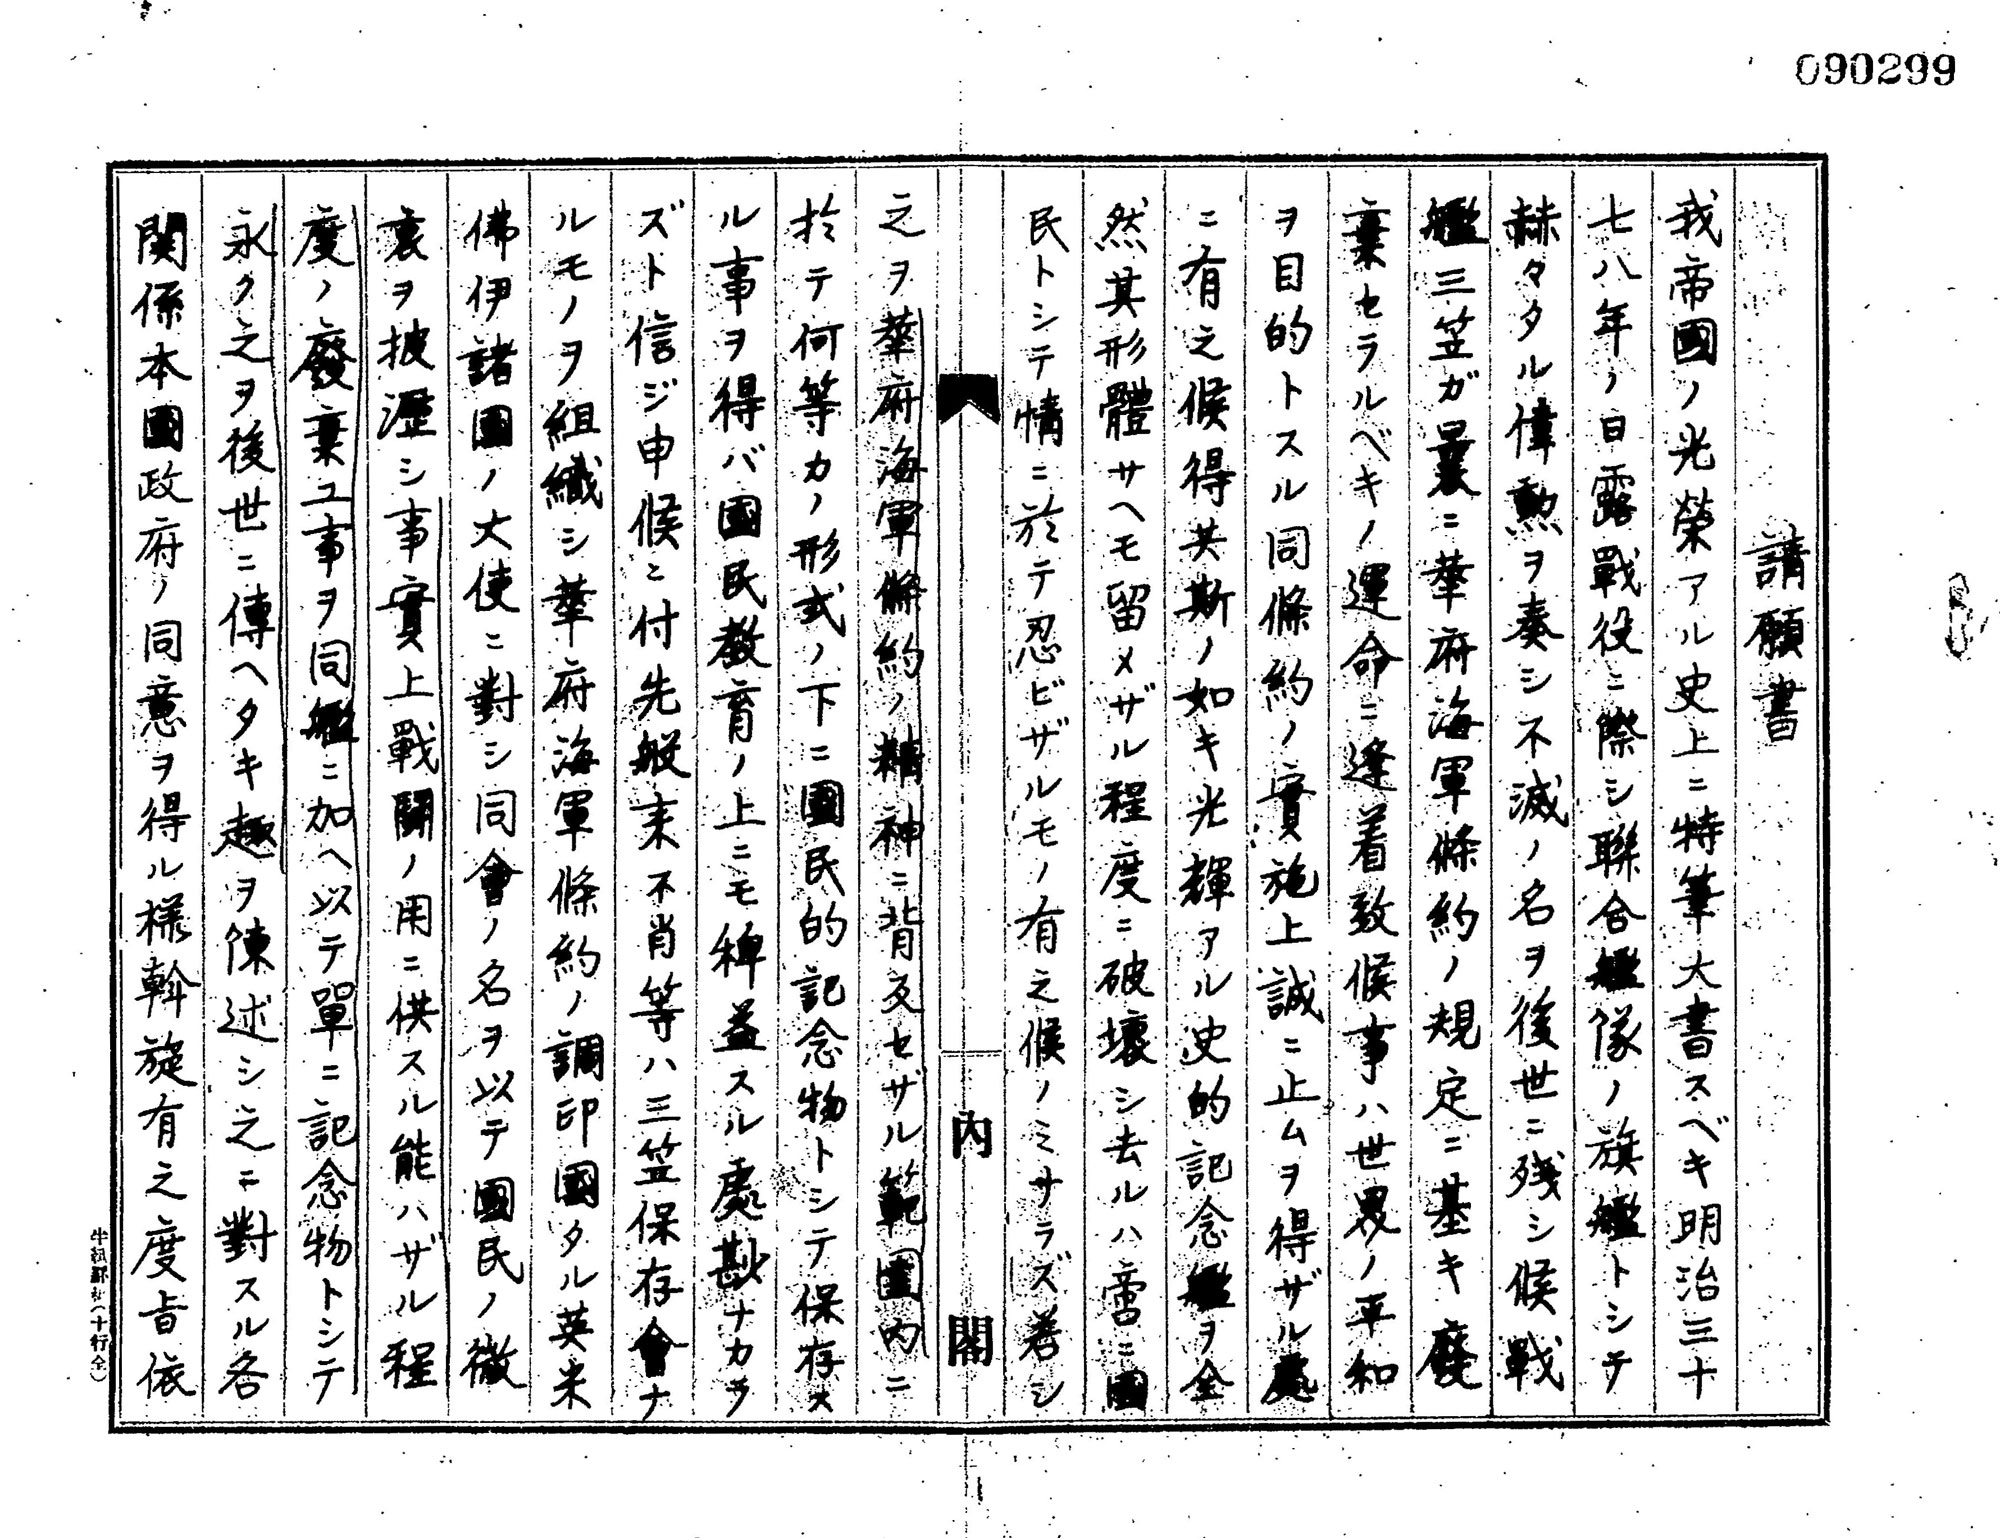 090299
請願書
我帝國ノ光榮アル史上ニ特筆大書スベキ明治三十
七八年ノ日露戰役ニ際シ聯合艦隊ノ旗艦トシテ
赫々タル偉勲ヲ奏シ不滅ノ名ヲ後世ニ残シ候戰
艦三笠ガ曩ニ華府海軍條約ノ規定ニ基キ廢
棄セラルベキノ運命ニ逢着致候事ハ世界ノ平和
ヲ目的トスル同條約ノ實施上誠ニ止ムヲ得ザル處
ニ有之候得共斯ノ如キ光輝アル史的記念艦ヲ全
然其形體サヘモ留メザル程度ニ破壞シ去ルハ啻ニ國
民トシテ情ニ於テ忍ビザルモノ有之候ノミサラズ若シ
之ヲ華府海軍條約ノ精神ニ背反セザル範圍内ニ
於テ何等カノ形式ノ下ニ國民的記念物トシテ保存ス
ル事ヲ得バ國民教育ノ上ニモ稗益スル處尠ナカラ
ズト信ジ申候ニ付先般来不肖等ハ三笠保存會ナ
ルモノヲ組織シ華府海軍條約ノ調印國タル英米
佛伊諸國ノ大使ニ對シ同會ノ名ヲ以テ國民ノ微
衷ヲ披瀝シ事實上戰鬪ノ用ニ供スル能ハザル程
度ノ廢棄工事ヲ同艦ニ加ヘ以テ單ニ記念物トシテ
永ク之ヲ後世ニ傳ヘタキ趣ヲ陳述シ之ニ對スル各
関係本國政府ノ同意ヲ得ル様斡旋有之度旨依
内閣